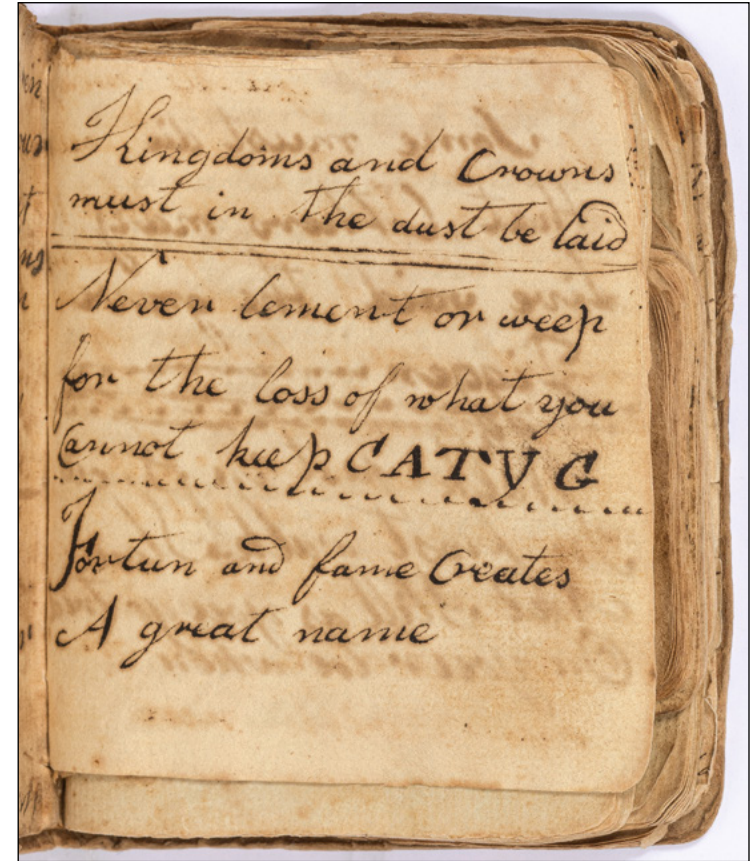 Kingdoms and Crowns
must in the dust be laid
Never lement or weep
for the loss of what you
Cannot keep CATVG
Fortun and fame Creates
A great name